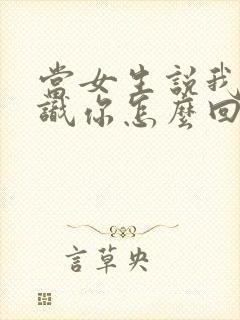 當女生說我
識你怎麼回
言草央